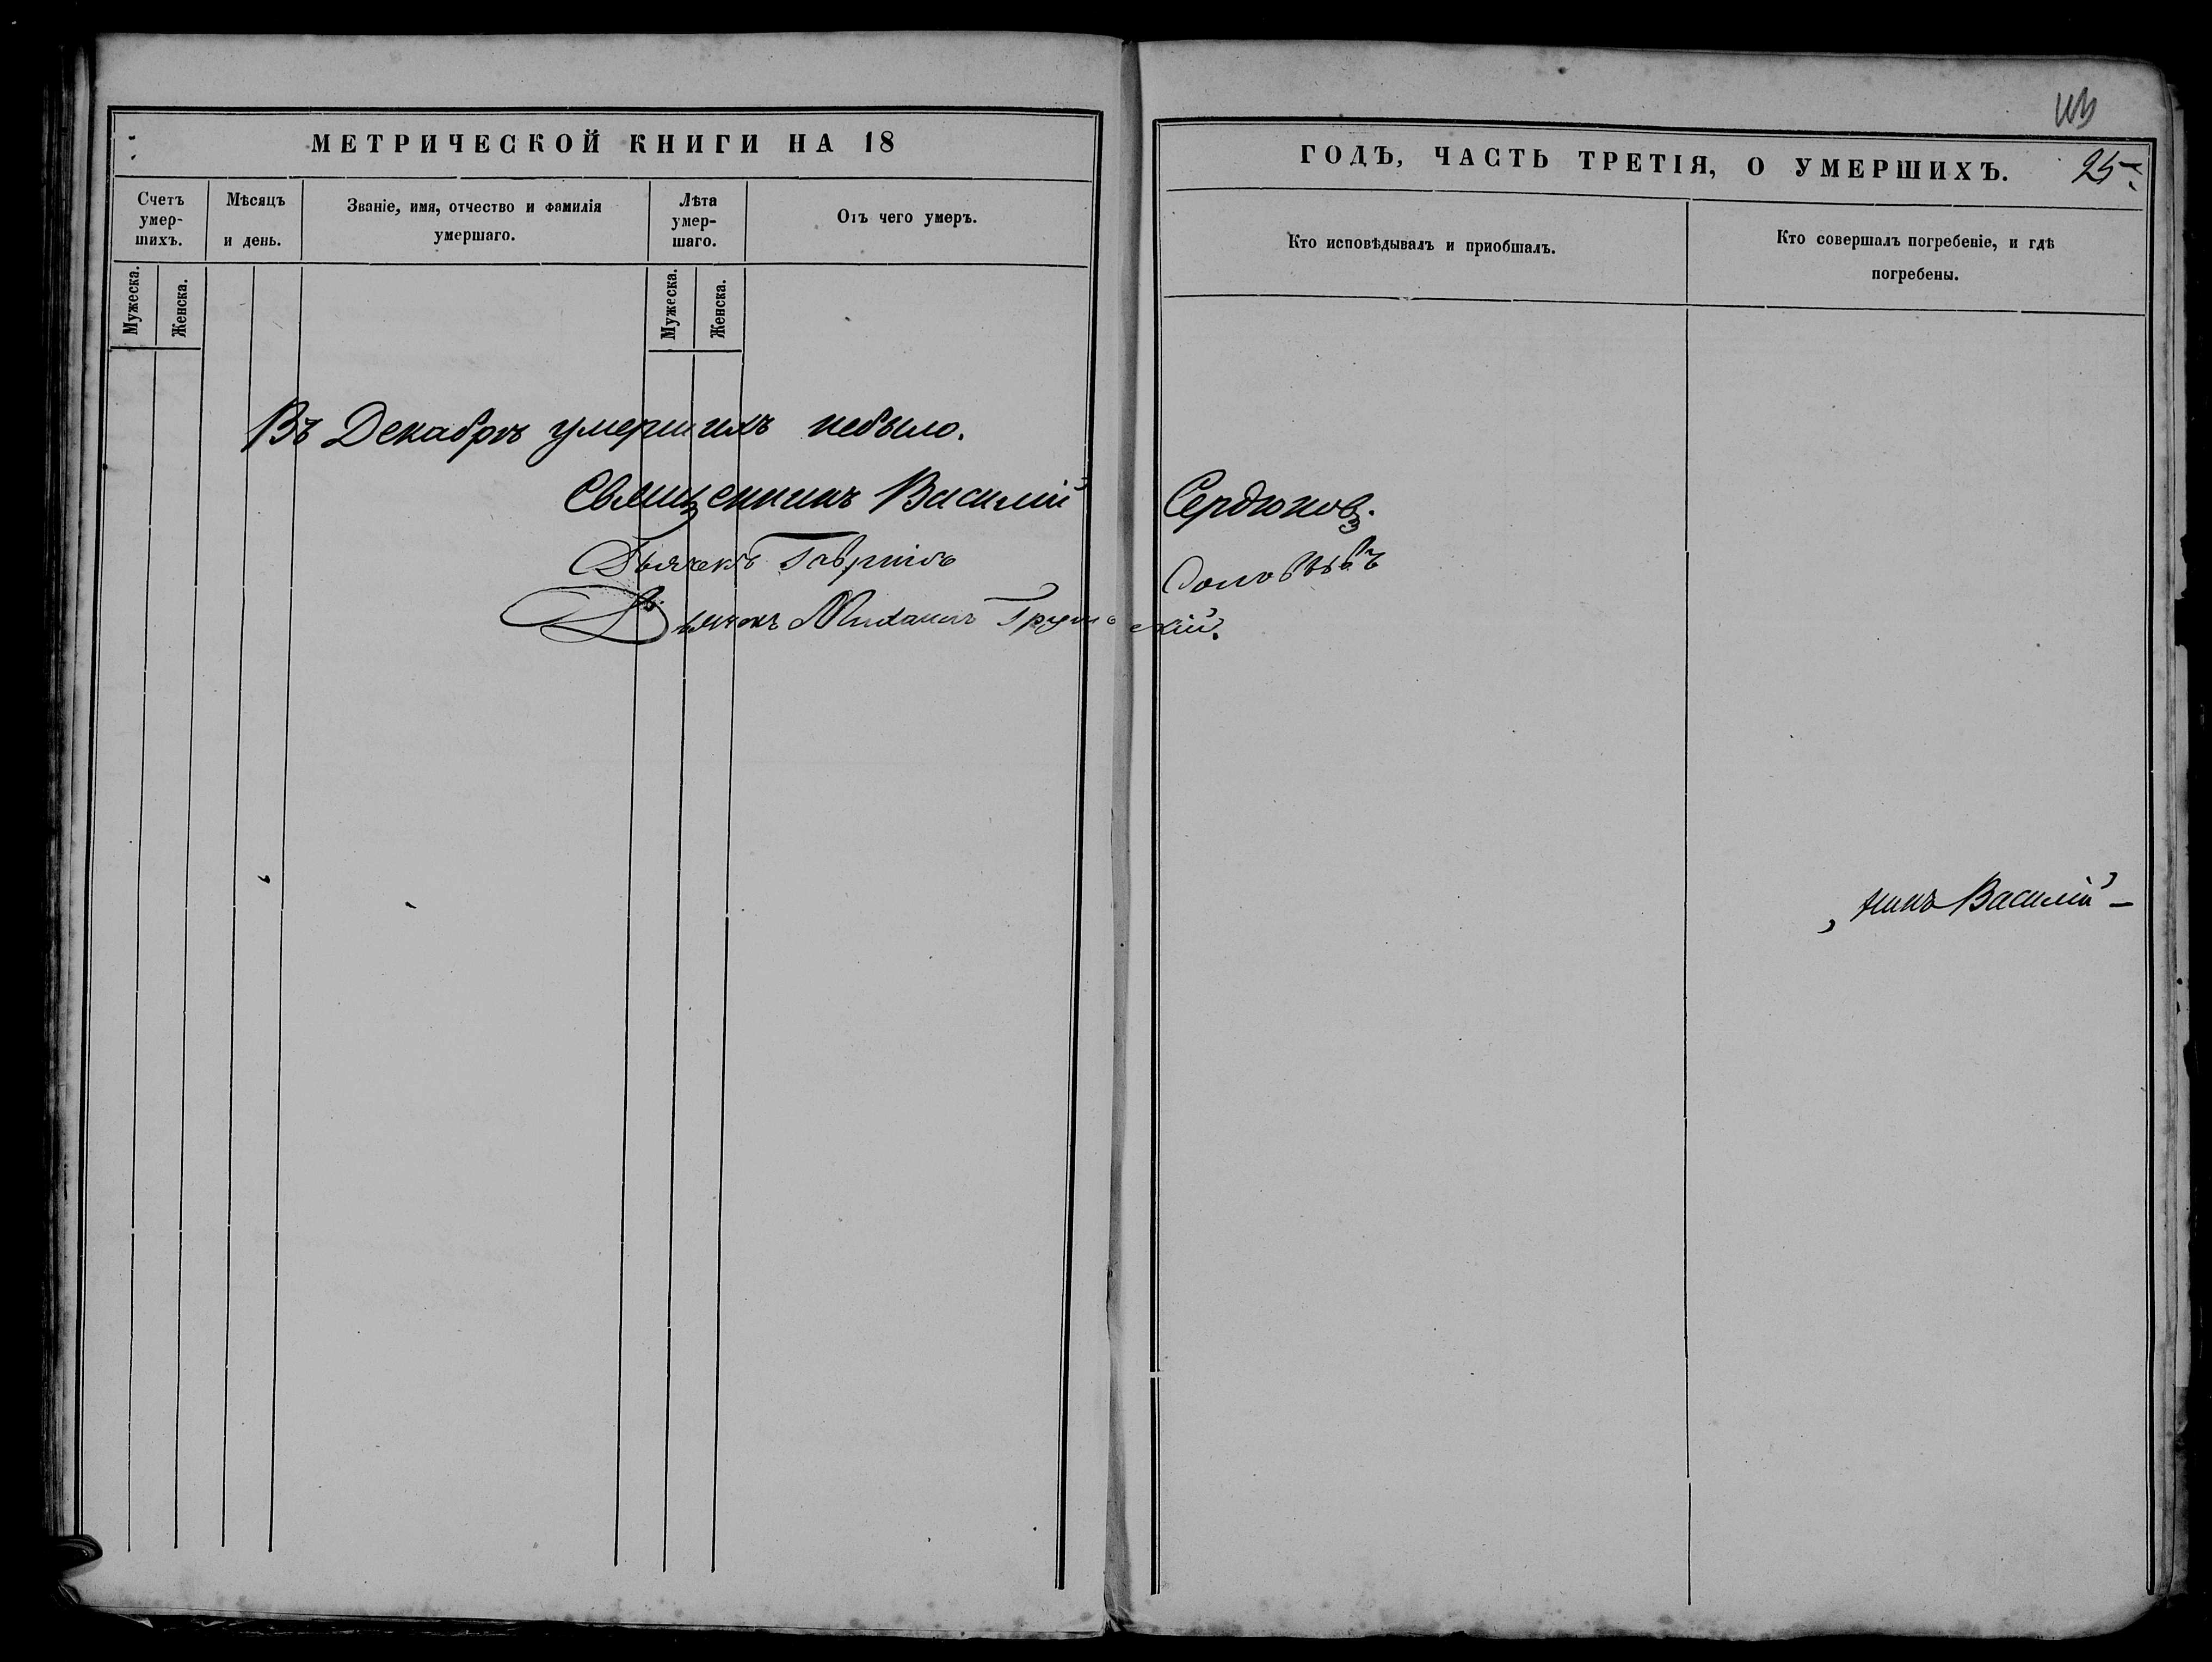 МЕТРИЧЕСКОЙ КНИГИ НА 18
Счетъ умер-шихъ.
Мѣсяцъ и день.
Званіе, имя, отчество и фамилія умершаго.
Лѣта умер-шаго.
Отъ чего умеръ.
Мужеска.
Женска.
Мужеска.
Женска.
Въ Декабрѣ умершихъ небыло.
Священникъ Василій Сердюковъ.
Дьячекъ Гавріилъ Соловьевъ
Дьячокъ Михаилъ
ГОДЪ, ЧАСТЬ ТРЕТІЯ, О УМЕРШИХЪ.
25
Кто исповѣдывалъ и приобщалъ.
Кто совершалъ погребеніе, и гдѣ погребены.
никъ Василій –